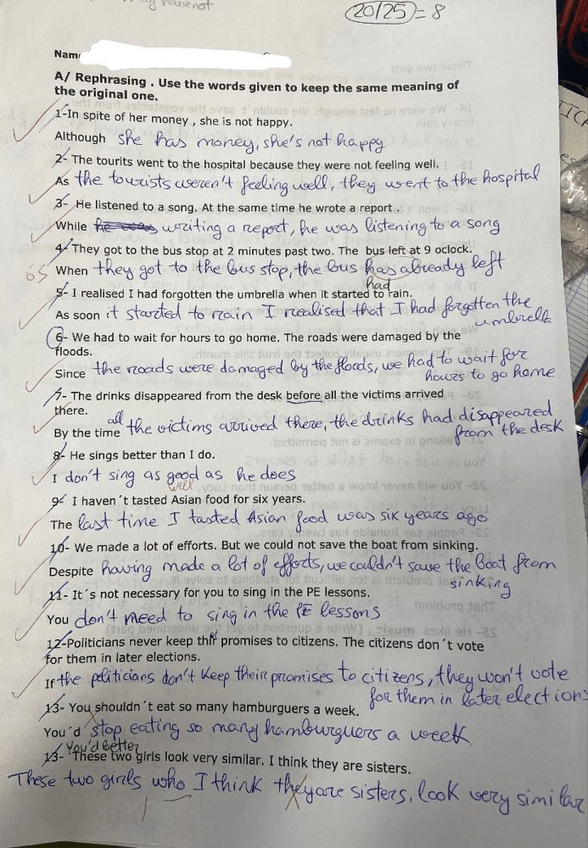 20/25 = 8
Name
A/ Rephrasing . Use the words given to keep the same meaning of
the original one.
1-In spite of her money , she is not happy.
Although she has money, she's not happy
2- The tourits went to the hospital because they were not feeling well.
As the tourists weren't feeling well, they went to the hospital
3- He listened to a song. At the same time he wrote a report .
While he was writing a report, he was listening to a song
4- They got to the bus stop at 2 minutes past two. The bus left at 9 oclock.
05 When they got to the bus stop, the bus has already left
had
5- I realised I had forgotten the umbrella when it started to rain.
As soon it started to rain I realised that I had forgetten the
umbrella
6- We had to wait for hours to go home. The roads were damaged by the
floods.
Since the roads were damaged by the floods, we had to wait for
hours to go home
7- The drinks disappeared from the desk before all the victims arrived
there.
By the time all the victims arrived there, the drinks had disappeared
from the desk
8- He sings better than I do.
I don't sing as good as he does
well
9- I haven´t tasted Asian food for six years.
The last time I tasted Asian food was six years ago
10- We made a lot of efforts. But we could not save the boat from sinking.
Despite having made a lot of efforts, we couldn't save the Boat from
sinking
11- It´s not necessary for you to sing in the PE lessons.
You don't need to sing in the PE lessons
12-Politicians never keep thir promises to citizens. The citizens don´t vote
for them in later elections.
If the politicians don't keep their promises to citizens, they won't vote
for them in later elections
13- You shouldn´t eat so many hamburguers a week.
You´d stop eating so many hamburguers a week
You'd better
13- These two girls look very similar. I think they are sisters.
These two girls who I think they are sisters, look very similar